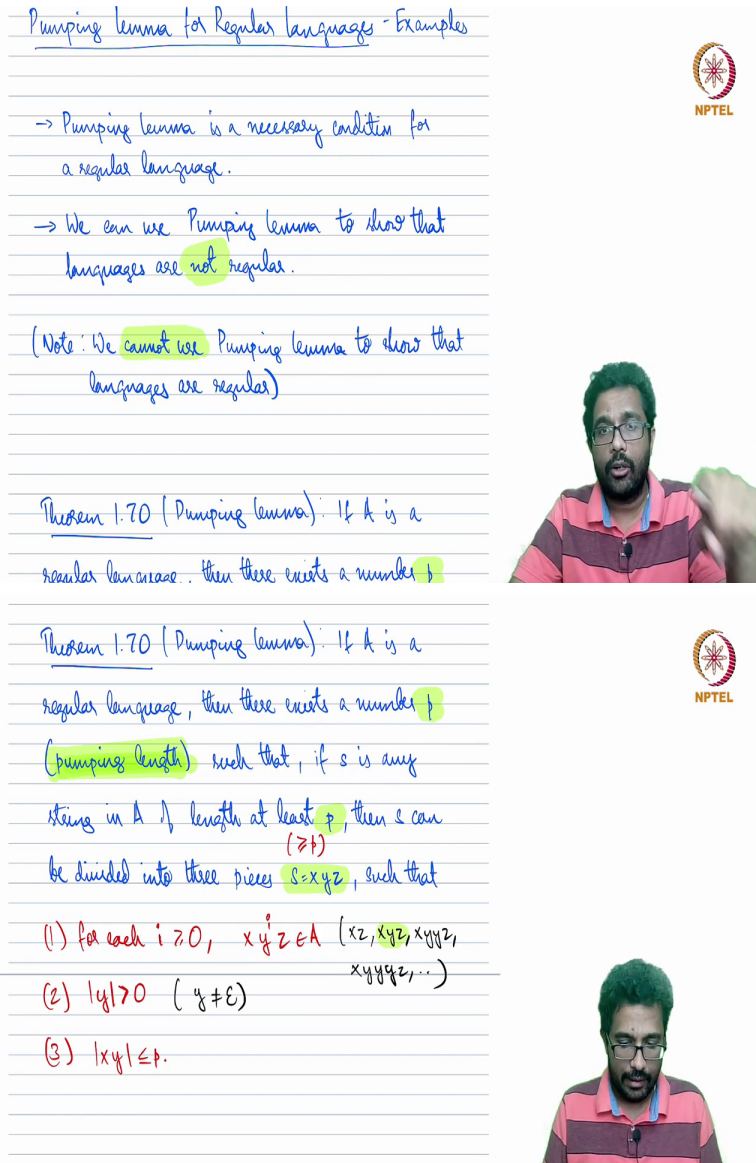 Pumping lemma for Regular languages - Examples
NPTEL
→ Pumping lemma is a necessary condition for
a regular language.
→ We can use Pumping lemma to show that
languages are not regular.
(Note: We cannot use Pumping lemma to show that
languages are regular)
Theorem 1.70 (Pumping lemma): If A is a
regular language, then there exists a number p
Theorem 1.70 (Pumping lemma): If A is a
NPTEL
regular language, then there exists a number p
(pumping length) such that, if s is any
string in A of length at least p, then s can
(≥p)
be divided into three pieces s=xyz, such that
(1) for each i ≥ 0, xyⁱz ∈ A (xz, xyz, xyyz,
xyyyz, ..)
(2) |y|>0 (y ≠ ε)
(3) |xy| ≤ p.